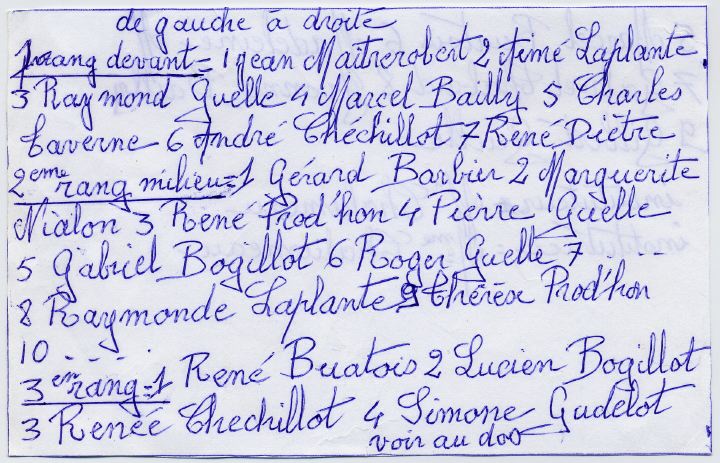 de gauche à droite
1 rang devant = 1 jean Maîtrerobert 2 Aimé Laplante
3 Raymond Guelle 4 Marcel Bailly 5 Charles
Caverne 6 André Chéchillot 7 René Diètre
2eme rang milieu = 1 Gérard Barbier 2 Marguerite
Nialon 3 René Prod'hon 4 Pierre Guelle
5 Gabriel Bogillot 6 Roger Guelle 7 .....
8 Raymonde Laplante 9 Thérèse Prod'hon
10 ....
3em rang = 1 René Buatois 2 Lucien Bogillot
3 Renée Chechillot 4 Simone Gudelot
voir au dos